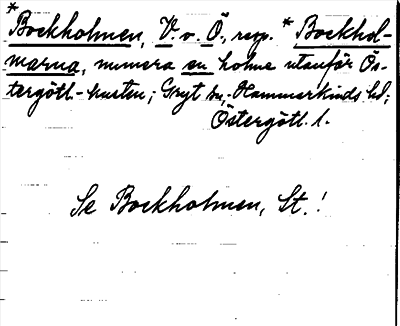 * Bockholmen, V. o. Ö., resp. * Bockhol-
marna, numera en holme utanför Ös-
tergötl.-kusten; Gryt sn, Hammarkinds hd;
Östergötl. l.
Se Bockholmen, St.!